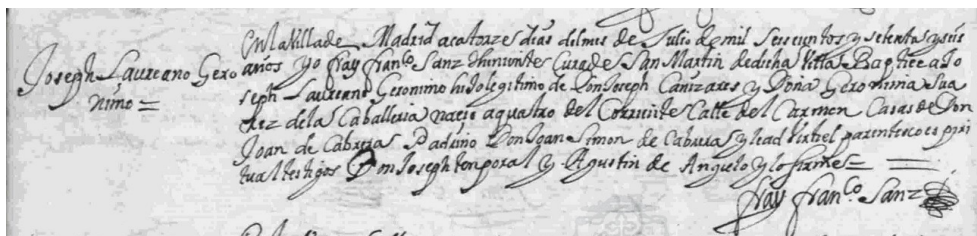 Joseph Laureano Gero
nimo =
En la Villa de Madrid a catorze dias del mes de Julio de mil seiscientos y setenta y seis
años yo fray Franco Sanz theniente Cura de San Martin de dicha Villa Baptice a Jo
seph Laureano Geronimo hijo legitimo de Don Joseph Cañizares y Doña Geromina Sua
rez de la Caballeria nacio a quatro del Corriente Calle del Carmen Casas de Don
Joan de Cabrera Padrino Don Joan Simon de Cabrera y le adverti el parentesco espiri
tual testigos Don Joseph temporal y Agustin de Angulo y lo firme =
fray Franco Sanz